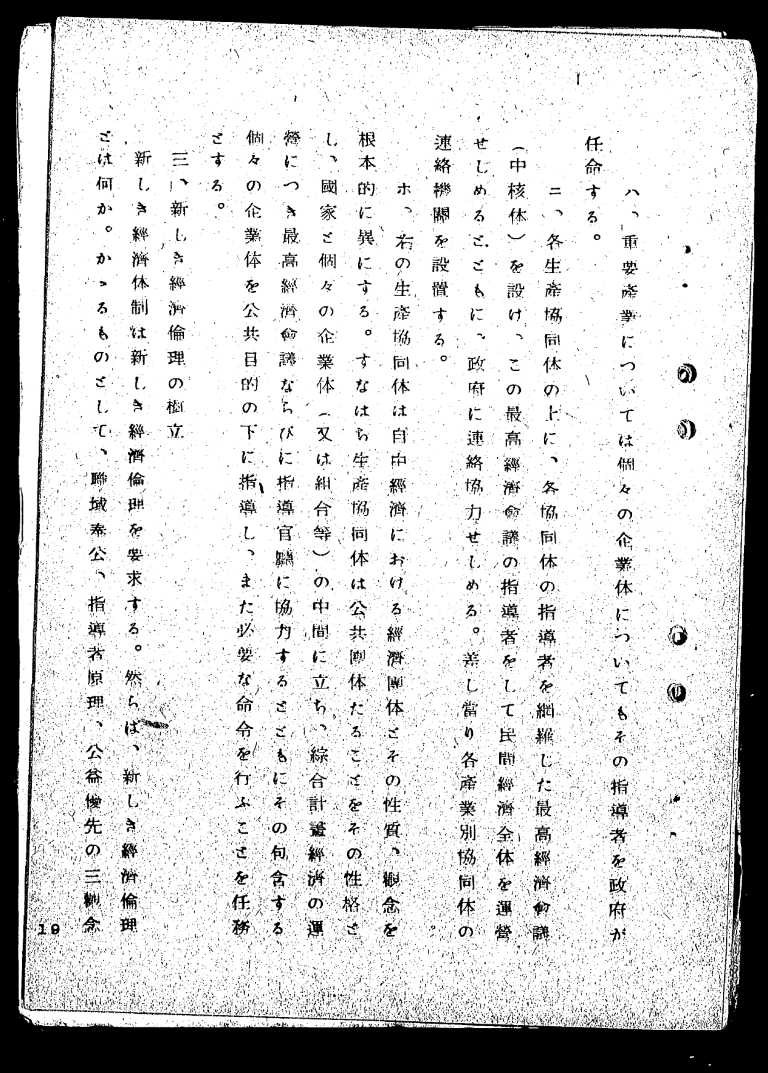 ハ、重要産業については個々の企業体についてもその指導者を政府が
任命する。
ニ、各生産協同体の上に、各協同体の指導者を網羅した最高經濟會議
（中核体）を設け、この最高經濟會議の指導者をして民間經濟全体を運營
せしめるとともに、政府に連絡協力せしめる。差し當り各産業別協同体の
連絡機關を設置する。
ホ、右の生産協同体は自由經濟における經濟團体とその性質、觀念を
根本的に異にする。すなはち生産協同体は公共團体たることをその性格と
し、國家と個々の企業体（又は組合等）の中間に立ち、綜合計畫經濟の運
營につき最高經濟會議ならびに指導官廳に協力するとともにその包含する
個々の企業体を公共目的の下に指導し、また必要な命令を行ふことを任務
とする。
三、新しき經濟倫理の樹立
新しき經濟体制は新しき經濟倫理を要求する。然らば、新しき經濟倫理
とは何か。かゝるものとして、職域奉公、指導者原理、公益優先の三觀念
19